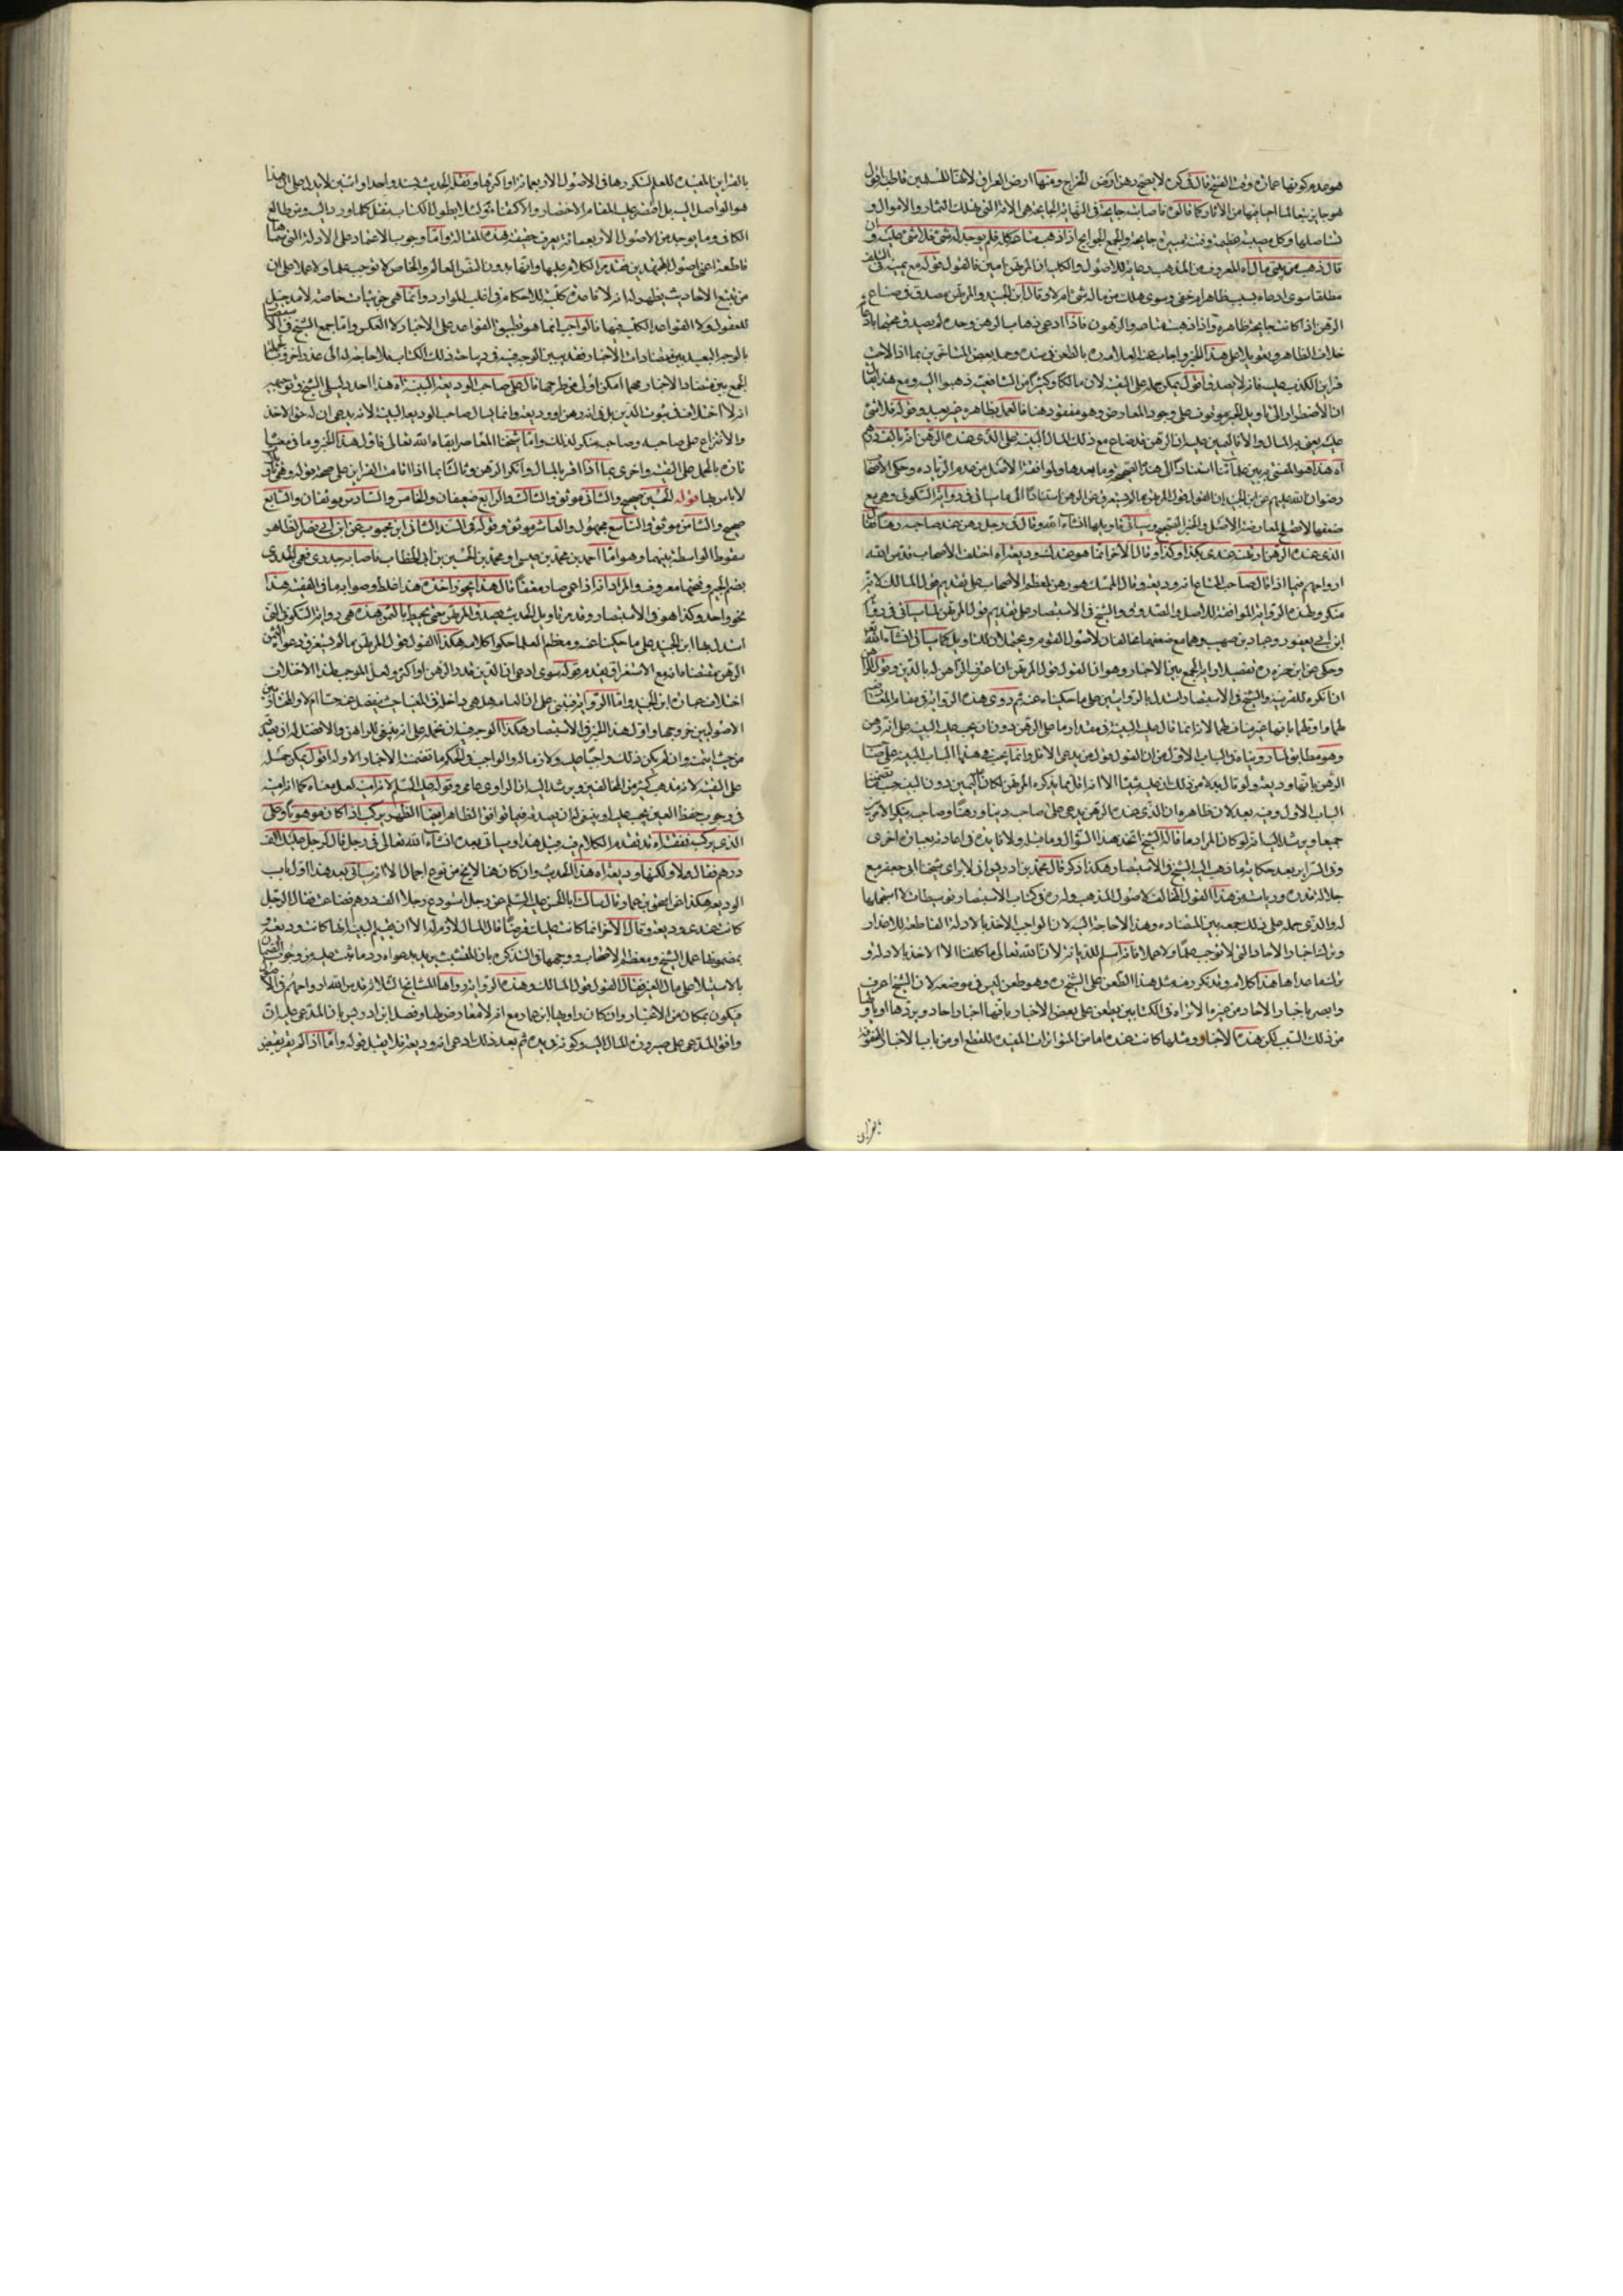 هو عدم كونها عمان وقت الفتح قال في كره لا يصح رهن ارض الخراج ومنها ارض العراق لانها للمسلمين قاطبة اقول
هو جايز تبعا لما احيا فيها من الاثار كما قالوه فاصابته جايحة في النهاية الجايحة هي الافة التي تهلك الثمار والاموال و
تستاصلها وكل مصيبة عظيمة وفتنة مبيرة جايحة والجمع الجوايح اذا ذهب متاعه كله فلم يوجد له شئ فلا شئ عليه و
قال ذهب من بيتي مالي اه المعروف من المذهب رعاية للاصول والكلية ان المرتهن امين فالقول قوله مع يمينه في التلف
مطلقا سوى ادعاه بسبب ظاهر ام خفي وسوى هلك من ماله شئ ام لا وقال ابن الجنيد والمرتهن مصدق في ضياع
الرهن اذا كانت جايحة ظاهرة واذا ذهبت متاعه والرهون فاذا ادعى ذهاب الرهن وحده لم يصدق
خلاف الظاهر وتعويلا على هذا الخبر واجاب عنه العلامة ره بالطعن في سنده وحمله بعض المتاخرين بما اذا لاحت
قراين الكذب عليه فانه لا يصدق اقول يمكن حمله على التقية لان مالكا وكثيرا من الشافعية ذهبوا اليه ومع هذا
ان الاضطرار الى تاويل الخبر موقوف على وجود المعارض وهو مفقود هنا فالعمل بظاهره غير بعيد وقوله فلا شئ
عليه يعني به المال والا فاليمين عليه ان الرهن قد ضاع مع ذلك المال البينة على الذي عنده الرهن انه بالف درهم
اه هذا هو المفتى به بين علمائنا استنادا الى هذا الصحيح وما بعدها ولموافقة الاصل من عدم الزيادة وحكى الاصحاب
رضوان الله عليهم عن ابن الجنيد ان القول قول المرتهن ما لم يستغرق ثمن الرهن استنادا الى ما ياتي في رواية السكوني وهي مع
ضعفها لا تصلح لمعارضة الاصل والخبر الصحيح وسياتي تاويلها انشاء الله وقال في رجل رهن عند صاحبه رهنا فقال
الذي عنده الرهن ارتهنته عندي بكذا وكذا وقال الاخر انما هو عندك وديعة اه اختلف الاصحاب قدس الله
ارواحهم فيما اذا قال صاحب المتاع انه وديعة وقال الممسك هو رهن فمعظم الاصحاب على تقديم قول المالك لانه
منكر ولهذه الرواية الموافقة للاصل والصدوق والشيخ في الاستبصار على تقديم قول المرتهن لما سياتي في
ابن ابي يعفور وعباد بن صهيب وهما مع ضعفهما مخالفان لاصول القوم ومحتملان للتاويل كما سياتي انشاء الله
وحكى عن ابن حمزه ره تفصيلا وايد الجمع بين الاخبار وهو ان القول قول المرتهن ان اعترف الراهن له بالدين وقول الراهن
ان انكره للقرينة والشيخ في الاستبصار استدل بالروايتين على ما حكيناه عنه ثم روى هذه الرواية في مقام المعارضة
لهما واولها بانها غير منافية لهما لانه انما قال عليه البينة في مقدار ما على الرهن دون ان يجب عليه البينة على انه رهن
وهو مطابق لما رويناه في الباب الاول من ان القول قول من يدعي الاقل وانما يجب في هذا الباب البينة على صاحب
الرهن بانها وديعة ولو قال بدلا من ذلك ان عليه شيئا الا انه اقل مما يذكره المرتهن لكان عليه اليمين دون البينة حسب ما تضمنه
الباب الاول وفيه بعد لان ظاهره ان الذي عنده الرهن يدعي على صاحبه دينا ورهنا وصاحبه ينكر الامرين
جميعا ويرشد اليه انه لو كان المراد ما قاله الشيخ اتحد هذا السؤال وما قبله ولا فايدة في اعادته بعبارة اخرى
وفي السراير بعد حكاية ما ذهب اليه الشيخ في الاستبصار هكذا ذكر قال محمد بن ادريس اني لاربا شيخنا ابي جعفر مع
جلالة قدره ورياسته من هذا القول المخالف لاصول المذهب وله ره في كتاب الاستبصار توسيطات لا استحليها
له والذي حمله على ذلك جمعه بين المتضاد وهذا لا حاجة اليه لان الواجب الاخذ بالادلة القاطعة للاعذار
وترك اخبار الاحاد التي لا توجب علما ولا عملا فانه اسلم للديانة لان الله تعالى ما كلفنا الا الاخذ بالادلة و
ترك ما عداها هذا كلامه وقد تكرر منه مثل هذا الطعن على الشيخ ره وهو طعن ليس في موضعه لان الشيخ اعرف
وابصر باخبار الاحاد من غيره الا تراه في الكتابين يطعن على بعض الاخبار بانها اخبار احاد ويردها او ياولها
من ذلك السبب لكن هذه الاخبار ومثلها كانت عنده اما من المتواترات المفيدة للقطع او من باب الاخبار المحفوفة
بالقراين
بالقراين المفيدة للعلم لتكررها في الاصول الاربعمائة او اكثرها ونقل الحديث بسند واحد او اثنين لا يدل على ان هذا
هو الواصل اليه بل اقتضى عليه المقام الاختصار والاكتفاء بذلك لئلا يطول الكتاب بنقل كلما ورد اليه ومن طالع
الكافي وما يوجد من الاصول الاربعمائة يعرف حقيقة هذه المقالة واما وجوب الاعتماد على الادلة التي سماها
قاطعة اعني اصول المجتهدين فقد مر الكلام عليها وانها بدون النص العام او الخاص لا توجب علما ولا عملا على ان
من تتبع الاحاديث يظهر له انه لا قاعدة كلية للاحكام في اغلب الموارد وانما هي جزئيات خاصة لا مدخل
للعقول ولا القواعد الكلية فيها فالواجب انما هو تطبيق القواعد على الاخبار لا العكس واما جمع الشيخ في الاستبصار
بالوجه البعيد بين متضادات الاخبار فقد بين الوجه فيه في ديباجة ذلك الكتاب فلا حاجة له الى عذر اخر وبالجملة
الجمع بين متضاد الاخبار مهما امكن اولى من طرحها قال على صاحب الوديعة البينة اه هذا احد دليلي الشيخ وتوجيهه
انه لا اختلاف في ثبوت الدين بل في انه رهن او وديعة وانما يسال صاحب الوديعة البينة لانه يدعي ان له حق الاخذ
والانتزاع على صاحبه وصاحبه منكر لذلك واما شيخنا المعاصر ابقاه الله تعالى فاول هذا الخبر وما في معناه
تارة بالحمل على التقية واخرى بما اذا اقر بالمال وانكر الرهن وثالثا بما اذا قامت القراين على صحة قوله وهي تاويلات
لا باس بها قوله الحسين صحيح والثاني موثق والثالث والرابع ضعيفان والخامس والسادس موثقان والسابع
صحيح والثامن موثق والتاسع مجهول والعاشر موثق وقوله في السند الثاني ابن محبوب عن ابن ابي نصر الظاهر
سقوط الواسطة بينهما وهو اما احمد بن محمد بن عيسى او محمد بن الحسين بن ابي الخطاب فاصابه جدري فعمي الجدري
بضم الجيم وفتحها معروف والمراد انه اذا عمي صار معتقا قال هذا يجوز اخذه هذا غلط وصوابه ما في الفقيه هذا
نحو واحد وكذا هو في الاستبصار وقد مر تاويل الحديث يصدق المرتهن حتى يحيط بالثمن هذه هي رواية السكوني التي
استدل بها ابن الجنيد على ما حكينا عنه ومعظم العلما حكوا كلامه هكذا القول قول المرتهن ما لم يستغرق دعواه ثمن
الرهن بمقتضاه انه مع الاستغراق يقدم قوله سوى ادعى ان الدين قدر الرهن او اكثر ولعل الموجب لهذا الاختلاف
اختلاف عبارة ابن الجنيد واما الرواية فيبتني على ان الغاية هل هي داخلة في المغيا حيث ينفصل عنه حسا ام لا والمختار بين
الاصوليين خروجها واول هذا الخبر في الاستبصار هكذا الوجه فيه ان نحمله على انه ينبغي للراهن والافضل له ان يصدقه
من حيث ائتمنه وان لم يكن ذلك واجبا عليه ولازما له والواجب في الحكم ما تضمنته الاخبار الاولة اقول يمكن حمله
على التقية لانه مذهب كثير من المخالفين ويرشد اليه ان الراوي عامي وقوله عليه السلم لانه امينه لعل معناه كما انه امينه
في وجوب حفظ العين يجب عليه او ينبغي له ان يصدقه فيما توافق الظاهر ايضا الظهر يركب اذا كان مرهونا وعلى
الذي يركب نفقته اه قد تقدم الكلام فيه قبل هذا وسياتي بعده انشاء الله تعالى في رجل قال لرجل عليك الف
درهم فقال لا ولكنها وديعة اه هذا الحديث وان كان هنا لا يخ من نوع اجمال الا انه سياتي بعد هذا اول باب
الوديعة هكذا عن اسحق بن عمار قال سالت ابا الحسن عليه السلم عن رجل استودع رجلا الف درهم فضاعت فقال الرجل
كانت عندي وديعة وقال الاخر انما كانت عليك قرضا قال المال لازم له الا ان يقيم البينة انها كانت وديعة و
بمضمونها عمل الشيخ ومعظم الاصحاب ووجهها في التذكرة بان المتشبث يزيد دعواه رد ما ثبت عليه من وجوب الضمان
بالاستيلاء على مال الغير فقال القول قول المالك وهذه الرواية رواها المشايخ الثلاثة قدس الله ارواحهم في الاصول
فيكون بمكان من الاعتبار وان كان راويها ابن عمار مع انه لا معارض لها وفصل ابن ادريس بان المدعى عليه ان
وافق المدعي على صيرورة المال اليه وكونه في يده ثم بعد ذلك ادعى انه وديعة فلا يقبل قوله واما اذا لم يقر بقبض